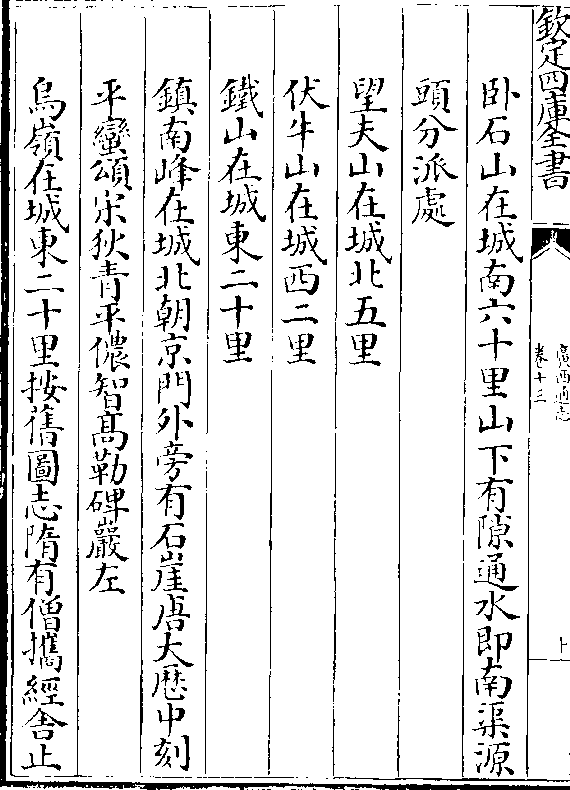 欽定四庫全書
廣西通志
卷十三
卧石山在城南六十里山下有隙通水即南渠源
頭分派處
望夫山在城北五里
伏牛山在城西二里
鐵山在城東二十里
鎮南峰在城北朝京門外旁有石崖唐大歴中刻
平蠻頌宋狄青平儂智髙勒碑巖左
烏嶺在城東二十里按舊圖志隋有僧攜經舎止